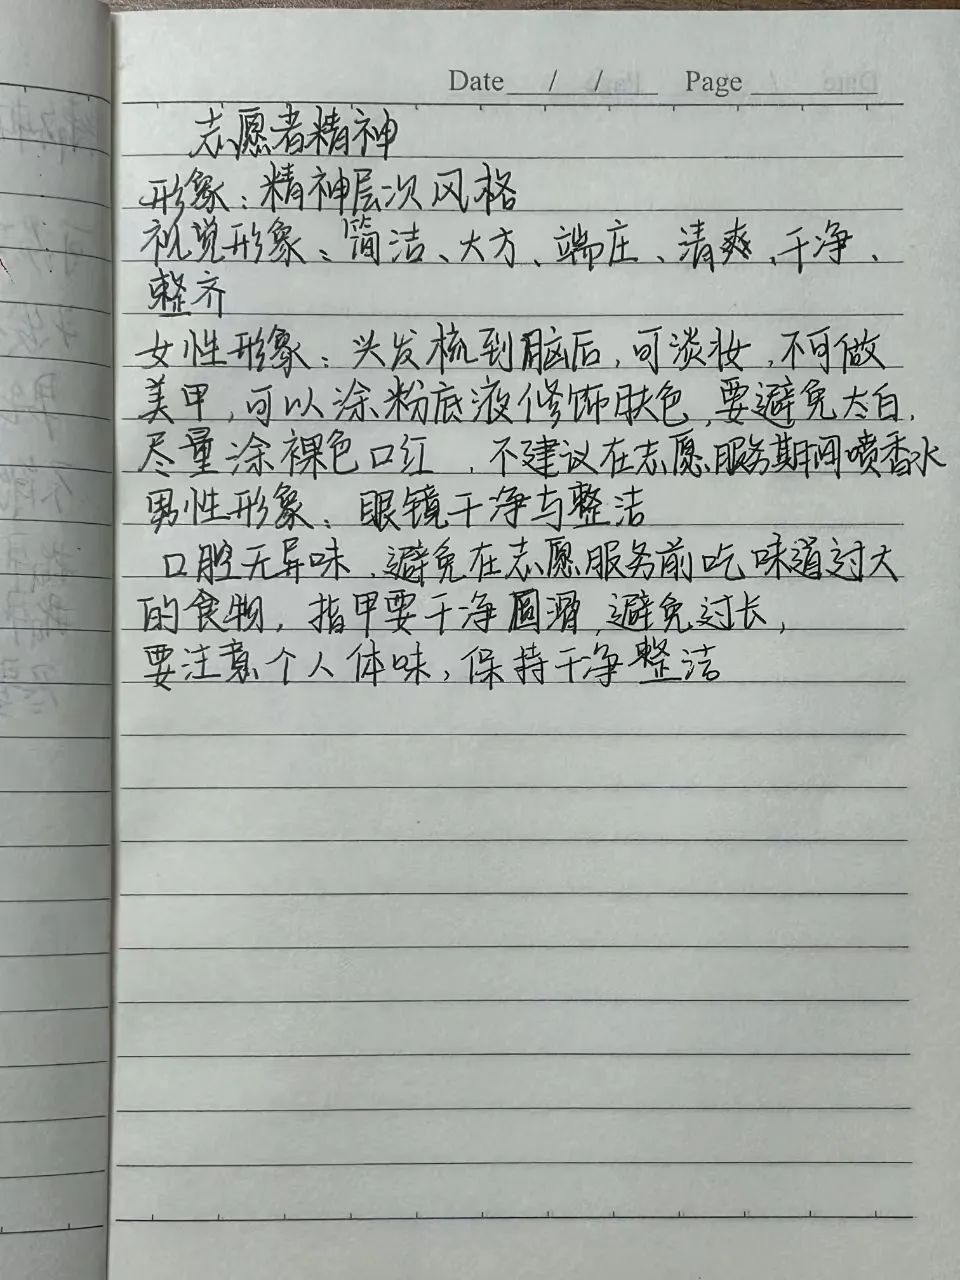 Date / / Page
志愿者精神
形象：精神层次风格
视觉形象：简洁、大方、端庄、清爽、干净、
整齐
女性形象：头发梳到脑后，可淡妆，不可做
美甲，可以涂粉底液修饰肤色，要避免太白，
尽量涂裸色口红，不建议在志愿服务期间喷香水
男性形象：眼镜干净与整洁
口腔无异味，避免在志愿服务前吃味道过大
的食物，指甲要干净圆滑，避免过长，
要注意个人体味，保持干净整洁